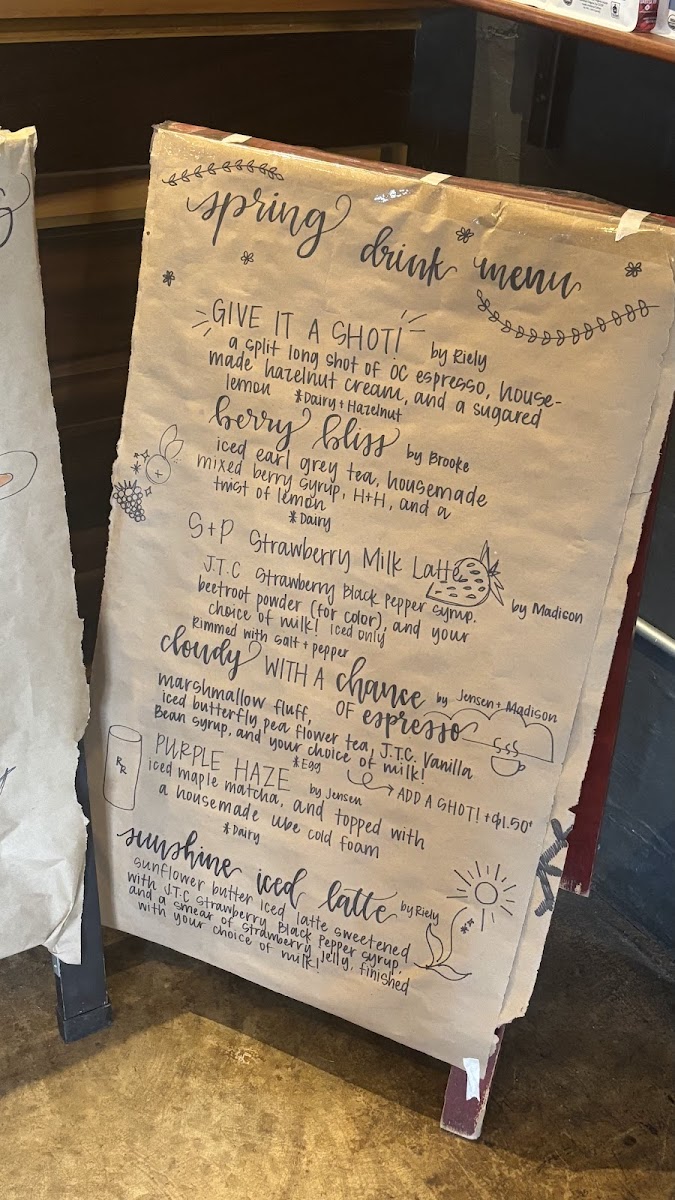 spring drink menu
GIVE IT A SHOT! by Riely
a split long shot of OC espresso, house-
made hazelnut cream, and a sugared
lemon *Dairy + Hazelnut
berry bliss by Brooke
iced earl grey tea, housemade
mixed berry syrup, H+H, and a
twist of lemon
*Dairy
S+P Strawberry Milk Latte
by Madison
J.T.C Strawberry Black Pepper syrup,
beetroot powder (for color), and your
choice of milk! Iced only
Rimmed with salt + pepper
cloudy WITH A chance by Jensen + Madison
OF espresso
marshmallow fluff,
iced butterfly pea flower tea, J.T.C. Vanilla
Bean syrup, and your choice of milk!
*Egg
ADD A SHOT! +$1.50
PURPLE HAZE by Jensen
iced maple matcha, and topped with
a housemade ube cold foam
*Dairy
RR
sunshine iced latte by Riely
sunflower butter iced latte sweetened
with J.T.C Strawberry Black Pepper syrup,
and a smear of strawberry jelly, finished
with your choice of milk!